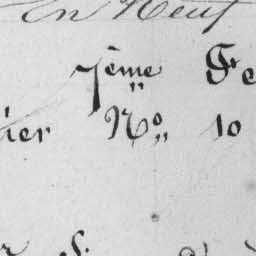 En Neuf
7ème Fe
hier No 10